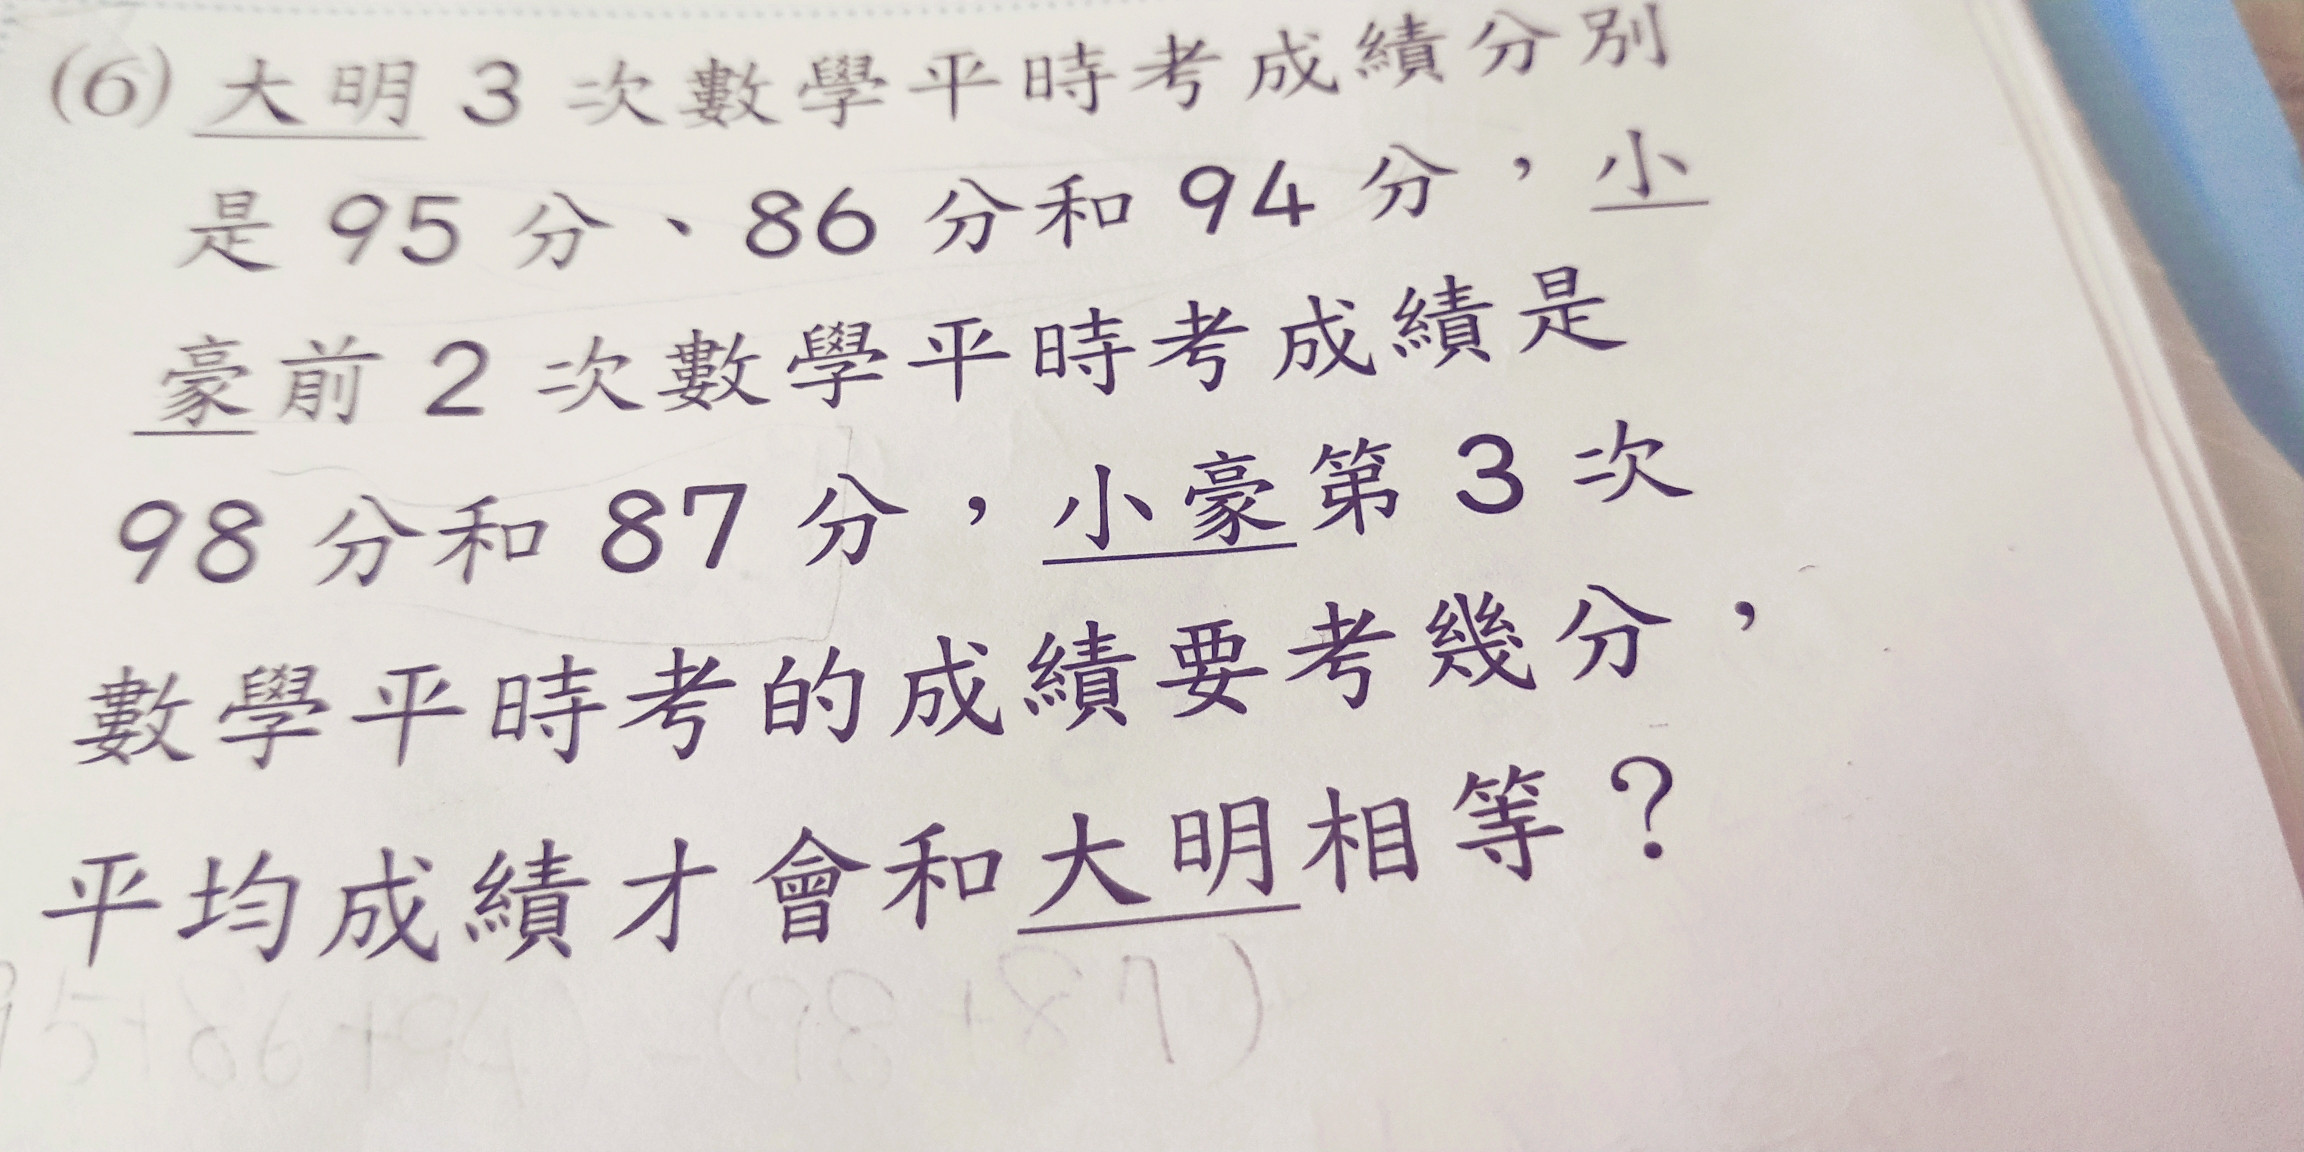 (6) 大明 3 次數學平時考成績分別
是 95 分、86 分和 94 分，小
豪前 2 次數學平時考成績是
98 分和 87 分，小豪第 3 次
數學平時考的成績要考幾分，
平均成績才會和大明相等？